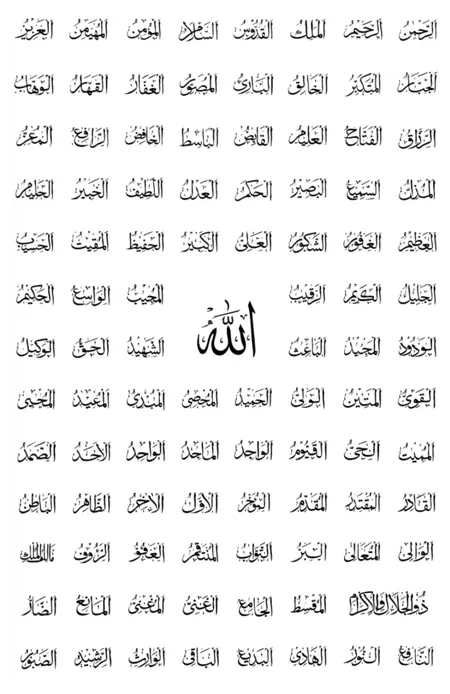 الرحمن الرحيم الملك القدوس السلام المؤمن المهيمن العزيز
الجبار المتكبر الخالق البارئ المصور الغفار القهار الوهاب
الرزاق الفتاح العليم القابض الباسط الخافض الرافع المعز
المذل السميع البصير الحكم العدل اللطيف الخبير الحليم
العظيم الغفور الشكور العلي الكبير الحفيظ المقيت الحسيب
الجليل الكريم الرقيب المجيب الواسع الحكيم
الله
الودود المجيد الباعث الشهيد الحق الوكيل
القوي المتين الولي الحميد المحصي المبدئ المعيد المحيي
المميت الحي القيوم الواجد الماجد الواحد الأحد الصمد
القادر المقتدر المقدم المؤخر الأول الآخر الظاهر الباطن
الوالي المتعالي البر التواب المنتقم العفو الرؤوف مالك الملك
ذو الجلال والإكرام المقسط الجامع الغني المغني المانع الضار
النافع النور الهادي البديع الباقي الوارث الرشيد الصبور